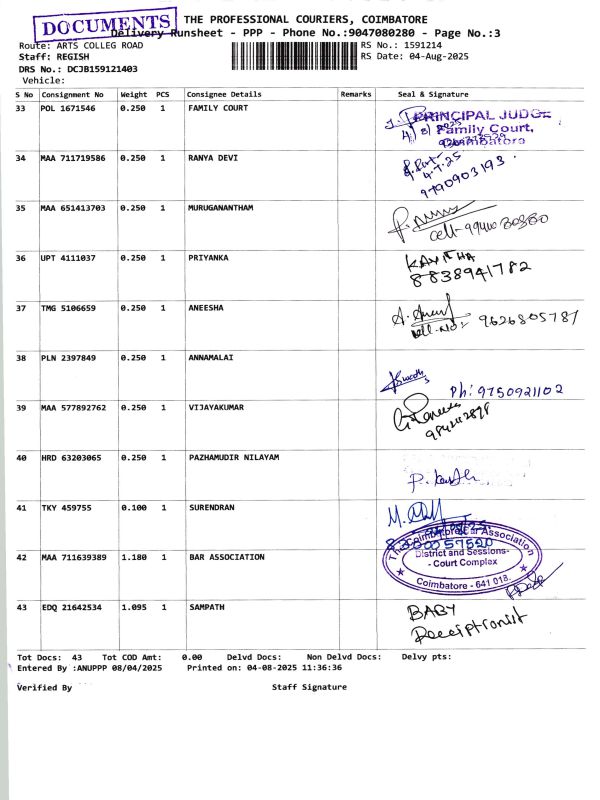 DOCUMENTS
THE PROFESSIONAL COURIERS, COIMBATORE
Delivery Runsheet - PPP - Phone No.:9047080280 - Page No.:3
Route: ARTS COLLEG ROAD
RS No.: 1591214
Staff: REGISH
RS Date: 04-Aug-2025
DRS No.: DCJB159121403
Vehicle:
S No Consignment No Weight PCS Consignee Details Remarks Seal & Signature
33 POL 1671546 0.250 1 FAMILY COURT
PRINCIPAL JUDGE
Family Court,
Coimbatore
34 MAA 711719586 0.250 1 RANYA DEVI
4.7.25
9790903193.
35 MAA 651413703 0.250 1 MURUGANANTHAM
cell-
36 UPT 4111037 0.250 1 PRIYANKA
KAVITHA
8838941782
37 TMG 5106659 0.250 1 ANEESHA
cell.No: 9626805787
38 PLN 2397849 0.250 1 ANNAMALAI
Ph: 9750921102
39 MAA 577892762 0.250 1 VIJAYAKUMAR
40 HRD 63203065 0.250 1 PAZHAMUDIR NILAYAM
41 TKY 459755 0.100 1 SURENDRAN
42 MAA 711639389 1.180 1 BAR ASSOCIATION
The Coimbatore Bar Association
District and Sessions-
- Court Complex
Coimbatore - 641 018.
43 EDQ 21642534 1.095 1 SAMPATH
BABY
Receiptionist
Tot Docs: 43 Tot COD Amt: 0.00 Delvd Docs: Non Delvd Docs: Delvy pts:
Entered By :ANUPPP 08/04/2025 Printed on: 04-08-2025 11:36:36
Verified By Staff Signature